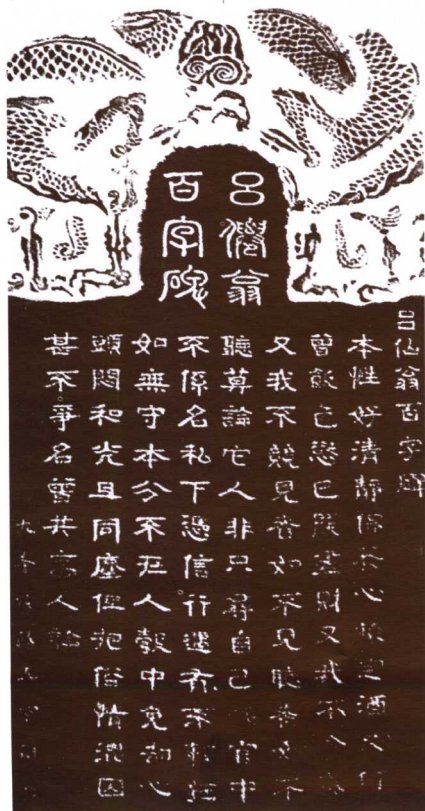 呂僊翁
百字碑
呂仙翁百字碑
本性好清靜保養心猿定酒又何
曾飲色慾已罷盡財又我不貪
又我不競見者如不見聽者不
聽莫論它人非只尋自己官中
不係名私下憑信行遇有不輕狂
如無守本分不在人彀中免却心
頭悶和光且同塵但把俗情混因
甚不爭名曾共高人論